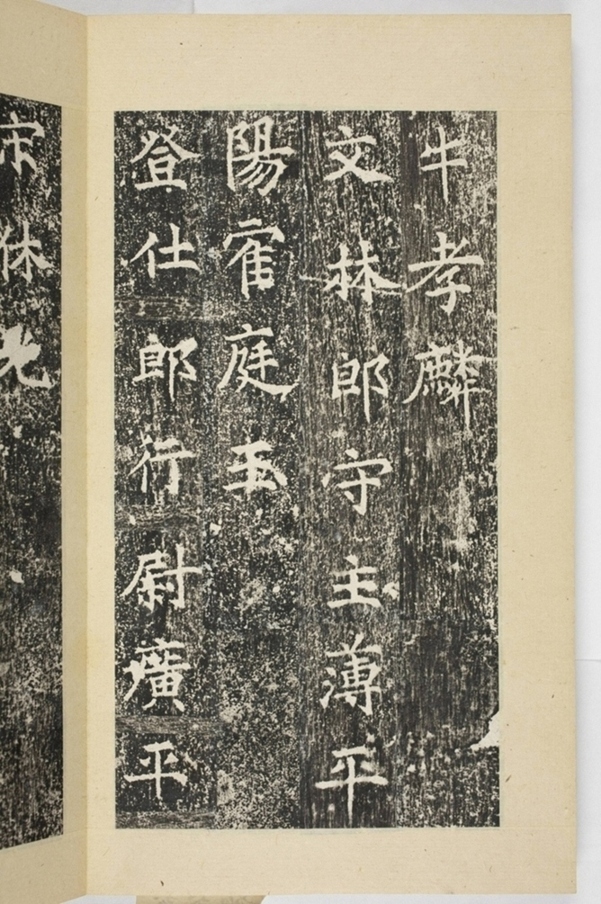 牛孝麟
文林郎守主薄平
陽霍庭玉
登仕郎行尉廣平
宋休光